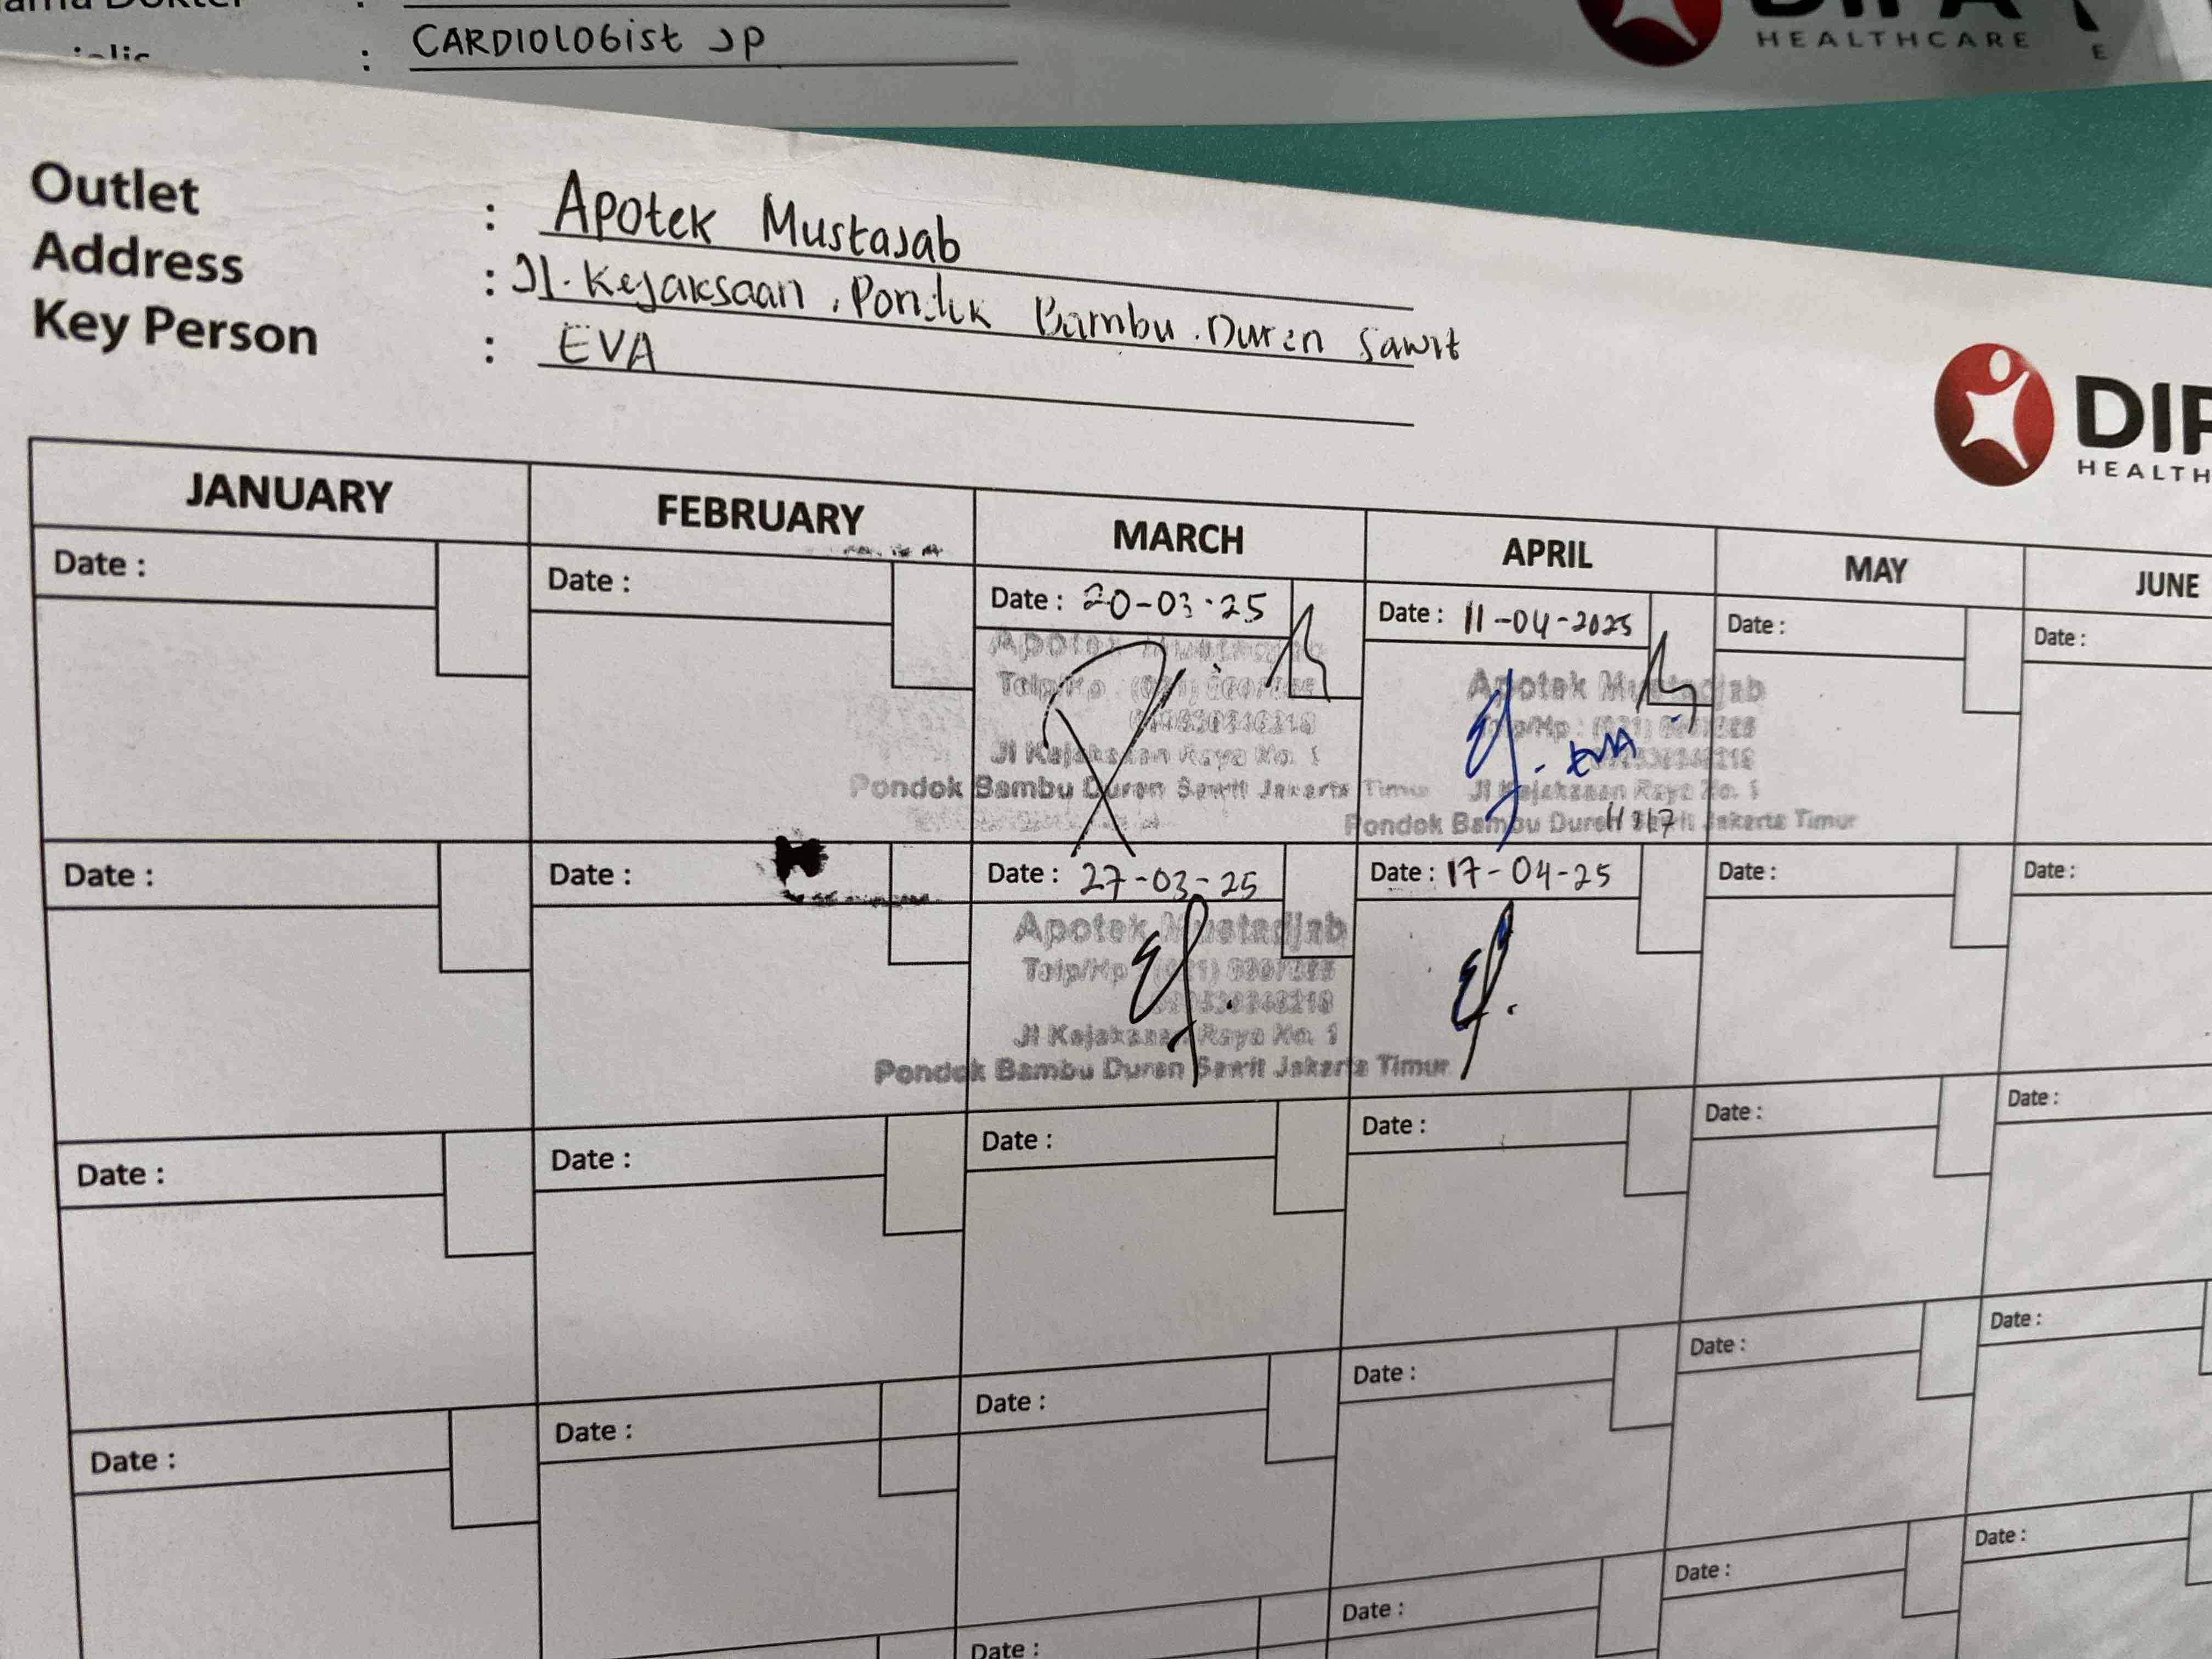 : CARDIOLOGist JP
HEALTHCARE
E
Outlet : Apotek Mustajab
Address : Jl. Kejaksaan, Pondok Bambu. Duren Sawit
Key Person : EVA
DIP
HEALTH
JANUARY FEBRUARY MARCH APRIL MAY JUNE
Date : Date : Date : 20-03-25 Date : 11-04-2025 Date : Date :
Apotek Apotek Mustadjab
Telp/Hp Telp/Hp : (021)
EVA
Jl Kejaksaan Raya No. 1 Jl Kejaksaan Raya No. 1
Pondok Bambu Duren Sawit Jakarta Timur Pondok Bambu Duren Sawit Jakarta Timur
Date : Date : Date : 27-03-25 Date : 17-04-25 Date : Date :
Apotek Mustadjab
Telp/Hp (021)
Jl Kejaksaan Raya No. 1
Pondok Bambu Duren Sawit Jakarta Timur
Date : Date : Date : Date : Date : Date :
Date : Date : Date : Date : Date : Date :
Date : Date : Date : Date :